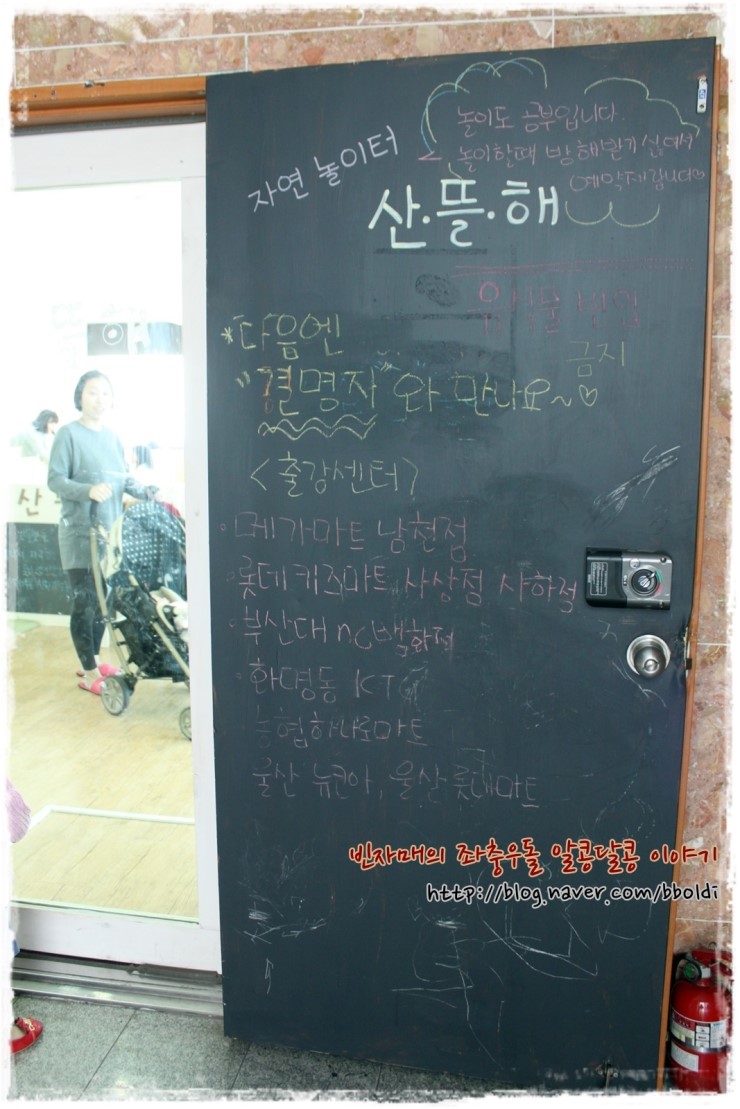 놀이도 공부입니다.
놀이할때 방해받기 싫어서
예약제 랍니다♡
자연 놀이터
산·뜰·해
음식물 반입
금지
*다음엔
"결명자"와 만나요~♡
<출강센터>
· 메가마트 남천점
· 롯데키즈마트 사상점 사하점
· 부산대 nc백화점
· 화명동 KT
농협하나로마트
울산 뉴코아, 울산롯데마트
산
빈자매의 좌충우돌 알콩달콩 이야기
http://blog.naver.com/bboldi